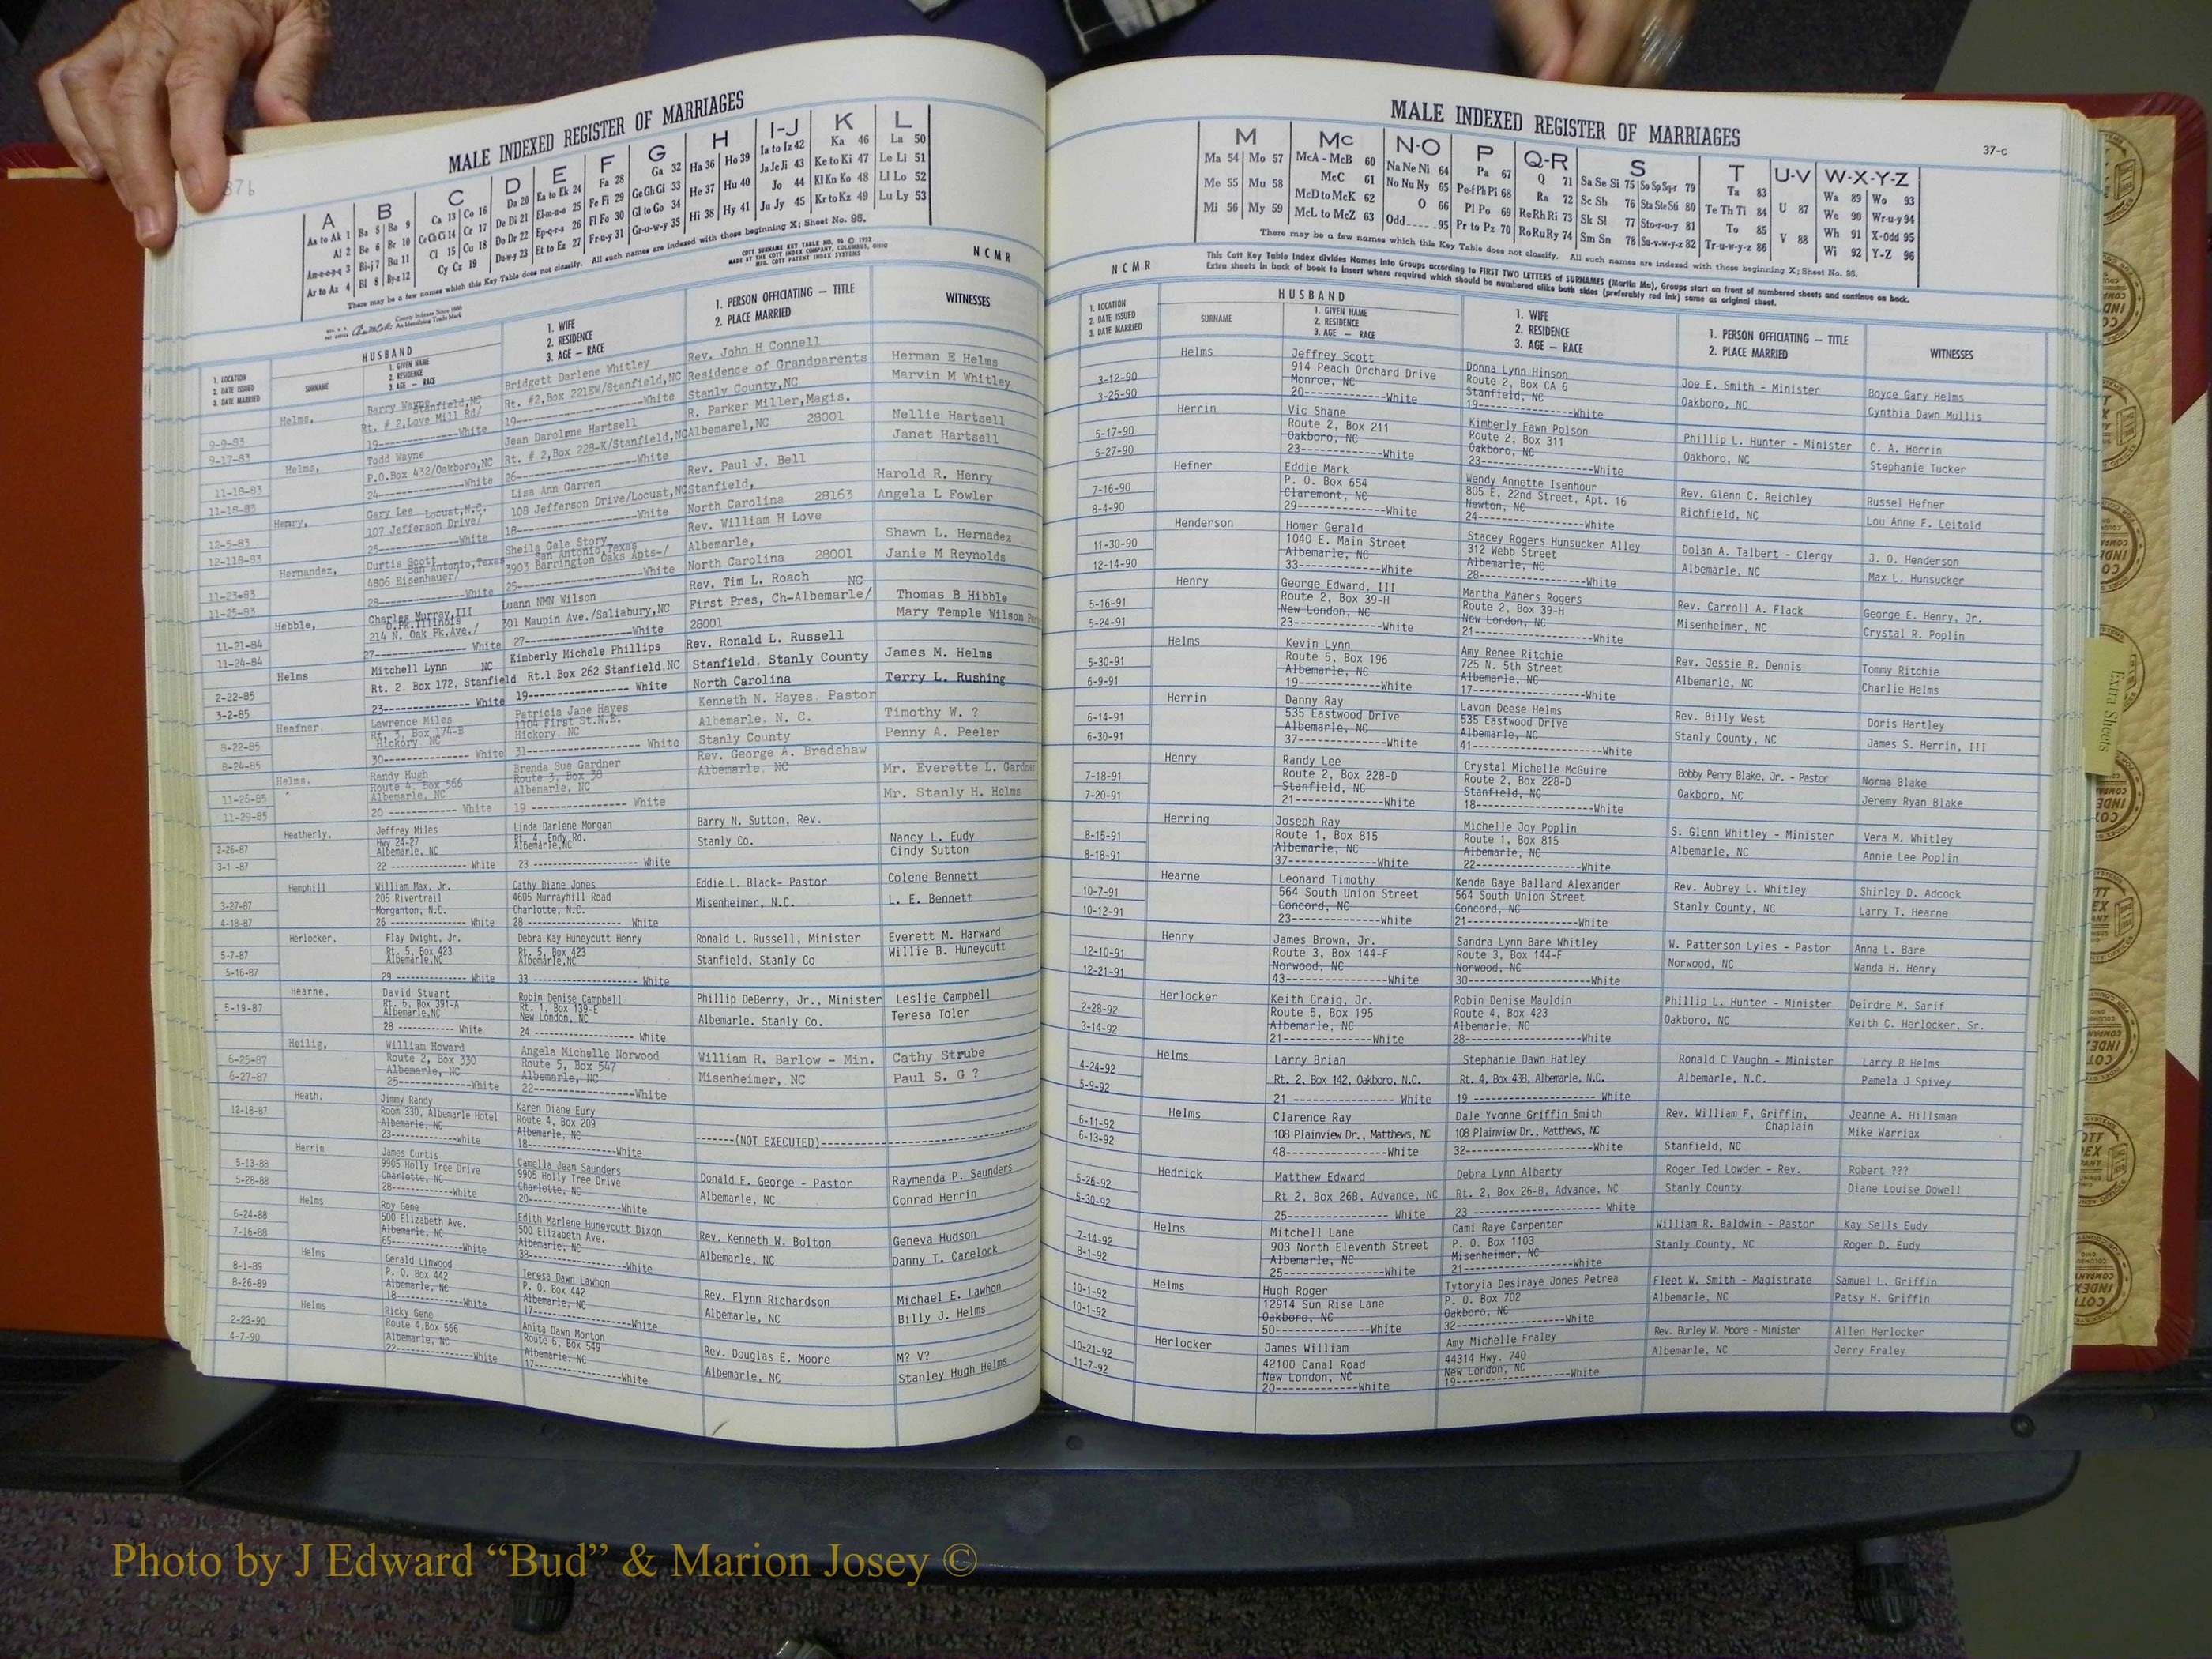 37b
MALE INDEXED REGISTER OF MARRIAGES
A
Aa to Ak 1
Al 2
Am-n-o-p-q 3
Ar to Az 4
B
Ba 5 Bo 9
Be 6 Br 10
Bi-j 7 Bu 11
Bl 8 By-z 12
C
Ca 13 Co 16
Ce Ch Ci 14 Cr 17
Cl 15 Cu 18
Cy Cz 19
D
Da 20
De Di 21
Do Dr 22
Du-w-y 23
E
Ea to Ek 24
El-m-n-o 25
Ep-q-r-s 26
Et to Ez 27
F
Fa 28
Fe Fi 29
Fl Fo 30
Fr-u-y 31
G
Ga 32
Ge Gh Gi 33
Gl to Go 34
Gr-u-w-y 35
H
Ha 36 Ho 39
He 37 Hu 40
Hi 38 Hy 41
I-J
Ia to Iz 42
Ja Je Ji 43
Jo 44
Ju Jy 45
K
Ka 46
Ke to Ki 47
Kl Kn Ko 48
Kr to Kz 49
L
La 50
Le Li 51
Ll Lo 52
Lu Ly 53
There may be a few names which this Key Table does not classify. All such names are indexed with those beginning X; Sheet No. 95.
COTT SURNAME KEY TABLE NO. 96 © 1952
MADE BY THE COTT INDEX COMPANY, COLUMBUS, OHIO
MFG. COTT PATENT INDEX SYSTEMS
NCMR
County Indexes Since 1888
An Identifying Trade Mark
1. LOCATION
2. DATE ISSUED
3. DATE MARRIED
HUSBAND
SURNAME
1. GIVEN NAME
2. RESIDENCE
3. AGE — RACE
1. WIFE
2. RESIDENCE
3. AGE — RACE
1. PERSON OFFICIATING — TITLE
2. PLACE MARRIED
WITNESSES
9-9-83
9-17-83
Helms,
Barry Wayne
Stanfield,NC
Rt. # 2,Love Mill Rd/
19------------White
Bridgett Darlene Whitley
Rt. #2,Box 221EW/Stanfield,NC
19------------White
Rev. John H Connell
Residence of Grandparents
Stanly County,NC
Herman E Helms
Marvin M Whitley
11-18-83
11-18-83
Helms,
Todd Wayne
P.O.Box 432/Oakboro,NC
24------------White
Jean Darolene Hartsell
Rt. # 2,Box 228-K/Stanfield,NC
26------------White
R. Parker Miller,Magis.
Albemarel,NC 28001
Nellie Hartsell
Janet Hartsell
12-5-83
12-118-83
Henry,
Gary Lee Locust,N.C.
107 Jefferson Drive/
25------------White
Lisa Ann Garren
108 Jefferson Drive/Locust,NC
18------------White
Rev. Paul J. Bell
Stanfield,
North Carolina 28163
Harold R. Henry
Angela L Fowler
11-23-83
11-25-83
Hernandez,
Curtis Scott
San Antonio,Texas
4806 Eisenhauer/
28------------White
Sheila Gale Story
San Antonio,Texas
3903 Barrington Oaks Apts-/
25------------White
Rev. William H Love
Albemarle,
North Carolina 28001
Shawn L. Hernadez
Janie M Reynolds
11-21-84
11-24-84
Hebble,
Charles Murray,III
O.Pk.Illinois
214 N. Oak Pk.Ave./
27------------White
Luann NMN Wilson
301 Maupin Ave./Saliabury,NC
27------------White
Rev. Tim L. Roach NC
First Pres, Ch-Albemarle/
28001
Thomas B Hibble
Mary Temple Wilson
2-22-85
3-2-85
Helms
Mitchell Lynn NC
Rt. 2. Box 172, Stanfield
23------------White
Kimberly Michele Phillips
Rt.1 Box 262 Stanfield,NC
19------------White
Rev. Ronald L. Russell
Stanfield, Stanly County
North Carolina
James M. Helms
Terry L. Rushing
8-22-85
8-24-85
Heafner.
Lawrence Miles
Rt. 3, Box 174-B
Hickory NC
30------------White
Patricia Jane Hayes
1104 First St.N.E.
Hickory, NC
31------------White
Kenneth N. Hayes, Pastor
Albemarle, N. C.
Stanly County
Timothy W. ?
Penny A. Peeler
11-26-85
11-29-85
Helms.
Randy Hugh
Route 4, Box 566
Albemarle, NC
20------------White
Brenda Sue Gardner
Route 3, Box 38
Albemarle, NC
19------------White
Rev. George A. Bradshaw
Albemarle, NC
Mr. Everette L. Gardner
Mr. Stanly H. Helms
2-26-87
3-1 -87
Heatherly.
Jeffrey Miles
Hwy 24-27
Albemarle, NC
22------------White
Linda Darlene Morgan
Rt. 4, Endy Rd.
Albemarle,NC
23------------White
Barry N. Sutton, Rev.
Stanly Co.
Nancy L. Eudy
Cindy Sutton
3-27-87
4-18-87
Hemphill
William Max, Jr.
205 Rivertrail
Morganton, N.C.
26------------White
Cathy Diane Jones
4605 Murrayhill Road
Charlotte, N.C.
28------------White
Eddie L. Black- Pastor
Misenheimer, N.C.
Colene Bennett
L. E. Bennett
5-7-87
5-16-87
Herlocker.
Flay Dwight, Jr.
Rt. 5, Box 423
Albemarle,NC
29------------White
Debra Kay Huneycutt Henry
Rt. 5, Box 423
Albemarle,NC
33------------White
Ronald L. Russell, Minister
Stanfield, Stanly Co
Everett M. Harward
Willie B. Huneycutt
5-19-87
Hearne,
David Stuart
Rt. 6, Box 391-A
Albemarle,NC
28------------White
Robin Denise Campbell
Rt. 1, Box 139-E
New London, NC
24------------White
Phillip DeBerry, Jr., Minister
Albemarle. Stanly Co.
Leslie Campbell
Teresa Toler
6-25-87
6-27-87
Heilig,
William Howard
Route 2, Box 330
Albemarle, NC
25------------White
Angela Michelle Norwood
Route 5, Box 547
Albemarle, NC
22------------White
William R. Barlow - Min.
Misenheimer, NC
Cathy Strube
Paul S. G ?
12-18-87
Heath.
Jimmy Randy
Room 330, Albemarle Hotel
Albemarle, NC
23------------white
Karen Diane Eury
Route 4, Box 209
Albemarle, NC
18------------White
-------(NOT EXECUTED)-------
5-13-88
5-28-88
Herrin
James Curtis
9905 Holly Tree Drive
Charlotte, NC
28------------White
Camella Jean Saunders
9905 Holly Tree Drive
Charlotte, NC
20------------White
Donald F. George - Pastor
Albemarle, NC
Raymenda P. Saunders
Conrad Herrin
6-24-88
7-16-88
Helms
Roy Gene
500 Elizabeth Ave.
Albemarle, NC
65------------White
Edith Marlene Huneycutt Dixon
500 Elizabeth Ave.
Albemarle, NC
38------------White
Rev. Kenneth W. Bolton
Albemarle, NC
Geneva Hudson
Danny T. Carelock
8-1-89
8-26-89
Helms
Gerald Linwood
P. O. Box 442
Albemarle, NC
18------------White
Teresa Dawn Lawhon
P. O. Box 442
Albemarle, NC
17------------White
Rev. Flynn Richardson
Albemarle, NC
Michael E. Lawhon
Billy J. Helms
2-23-90
4-7-90
Helms
Ricky Gene
Route 4,Box 566
Albemarle, NC
22------------White
Anita Dawn Morton
Route 6, Box 549
Albemarle, NC
17------------White
Rev. Douglas E. Moore
Albemarle, NC
M? V?
Stanley Hugh Helms
MALE INDEXED REGISTER OF MARRIAGES
37-c
M
Ma 54 Mo 57
Me 55 Mu 58
Mi 56 My 59
Mc
McA - McB 60
McC 61
McD to McK 62
McL to McZ 63
N-O
Na Ne Ni 64
No Nu Ny 65
O 66
Odd 95
P
Pa 67
Pe-f Ph Pi 68
Pl Po 69
Pr to Pz 70
Q-R
Q 71
Ra 72
Re Rh Ri 73
Ro Ru Ry 74
S
Sa Se Si 75 So Sp Sq-r 79
Sc Sh 76 Sta Ste Sti 80
Sk Sl 77 Sto-r-u-y 81
Sm Sn 78 Su-v-w-y-z 82
T
Ta 83
Te Th Ti 84
To 85
Tr-u-w-y-z 86
U-V
U 87
V 88
W-X-Y-Z
Wa 89 Wo 93
We 90 Wr-u-y 94
Wh 91 X-Odd 95
Wi 92 Y-Z 96
There may be a few names which this Key Table does not classify. All such names are indexed with those beginning X; Sheet No. 95.
NCMR
This Cott Key Table Index divides Names into Groups according to FIRST TWO LETTERS of SURNAMES (Martin Ma), Groups start on front of numbered sheets and continue on back.
Extra sheets in back of book to insert where required which should be numbered alike both sides (preferably red ink) same as original sheet.
1. LOCATION
2. DATE ISSUED
3. DATE MARRIED
HUSBAND
SURNAME
1. GIVEN NAME
2. RESIDENCE
3. AGE — RACE
1. WIFE
2. RESIDENCE
3. AGE — RACE
1. PERSON OFFICIATING — TITLE
2. PLACE MARRIED
WITNESSES
3-12-90
3-25-90
Helms
Jeffrey Scott
914 Peach Orchard Drive
Monroe, NC
20------------White
Donna Lynn Hinson
Route 2, Box CA 6
Stanfield, NC
19------------White
Joe E. Smith - Minister
Oakboro, NC
Boyce Gary Helms
Cynthia Dawn Mullis
5-17-90
5-27-90
Herrin
Vic Shane
Route 2, Box 211
Oakboro, NC
23------------White
Kimberly Fawn Polson
Route 2, Box 311
Oakboro, NC
23------------White
Phillip L. Hunter - Minister
Oakboro, NC
C. A. Herrin
Stephanie Tucker
7-16-90
8-4-90
Hefner
Eddie Mark
P. O. Box 654
Claremont, NC
29------------White
Wendy Annette Isenhour
805 E. 22nd Street, Apt. 16
Newton, NC
24------------White
Rev. Glenn C. Reichley
Richfield, NC
Russel Hefner
Lou Anne F. Leitold
11-30-90
12-14-90
Henderson
Homer Gerald
1040 E. Main Street
Albemarle, NC
33------------White
Stacey Rogers Hunsucker Alley
312 Webb Street
Albemarle, NC
28------------White
Dolan A. Talbert - Clergy
Albemarle, NC
J. O. Henderson
Max L. Hunsucker
5-16-91
5-24-91
Henry
George Edward, III
Route 2, Box 39-H
New London, NC
23------------White
Martha Maners Rogers
Route 2, Box 39-H
New London, NC
21------------White
Rev. Carroll A. Flack
Misenheimer, NC
George E. Henry, Jr.
Crystal R. Poplin
5-30-91
6-9-91
Helms
Kevin Lynn
Route 5, Box 196
Albemarle, NC
19------------White
Amy Renee Ritchie
725 N. 5th Street
Albemarle, NC
17------------White
Rev. Jessie R. Dennis
Albemarle, NC
Tommy Ritchie
Charlie Helms
6-14-91
6-30-91
Herrin
Danny Ray
535 Eastwood Drive
Albemarle, NC
37------------White
Lavon Deese Helms
535 Eastwood Drive
Albemarle, NC
41------------White
Rev. Billy West
Stanly County, NC
Doris Hartley
James S. Herrin, III
7-18-91
7-20-91
Henry
Randy Lee
Route 2, Box 228-D
Stanfield, NC
21------------White
Crystal Michelle McGuire
Route 2, Box 228-D
Stanfield, NC
18------------White
Bobby Perry Blake, Jr. - Pastor
Oakboro, NC
Norma Blake
Jeremy Ryan Blake
8-15-91
8-18-91
Herring
Joseph Ray
Route 1, Box 815
Albemarle, NC
37------------White
Michelle Joy Poplin
Route 1, Box 815
Albemarle, NC
22------------White
S. Glenn Whitley - Minister
Albemarle, NC
Vera M. Whitley
Annie Lee Poplin
10-7-91
10-12-91
Hearne
Leonard Timothy
564 South Union Street
Concord, NC
23------------White
Kenda Gaye Ballard Alexander
564 South Union Street
Concord, NC
21------------White
Rev. Aubrey L. Whitley
Stanly County, NC
Shirley D. Adcock
Larry T. Hearne
12-10-91
12-21-91
Henry
James Brown, Jr.
Route 3, Box 144-F
Norwood, NC
43------------White
Sandra Lynn Bare Whitley
Route 3, Box 144-F
Norwood, NC
30------------White
W. Patterson Lyles - Pastor
Norwood, NC
Anna L. Bare
Wanda H. Henry
2-28-92
3-14-92
Herlocker
Keith Craig, Jr.
Route 5, Box 195
Albemarle, NC
21------------White
Robin Denise Mauldin
Route 4, Box 423
Albemarle, NC
28------------White
Phillip L. Hunter - Minister
Oakboro, NC
Deirdre M. Sarif
Keith C. Herlocker, Sr.
4-24-92
5-9-92
Helms
Larry Brian
Rt. 2, Box 142, Oakboro, N.C.
21------------White
Stephanie Dawn Hatley
Rt. 4, Box 438, Albemarle, N.C.
19------------White
Ronald C Vaughn - Minister
Albemarle, N.C.
Larry R Helms
Pamela J Spivey
6-11-92
6-13-92
Helms
Clarence Ray
108 Plainview Dr., Matthews, NC
48------------White
Dale Yvonne Griffin Smith
108 Plainview Dr., Matthews, NC
32------------White
Rev. William F, Griffin,
Chaplain
Stanfield, NC
Jeanne A. Hillsman
Mike Warriax
5-26-92
5-30-92
Hedrick
Matthew Edward
Rt 2, Box 26B, Advance, NC
25------------White
Debra Lynn Alberty
Rt. 2, Box 26-B, Advance, NC
23------------White
Roger Ted Lowder - Rev.
Stanly County
Robert ???
Diane Louise Dowell
7-14-92
8-1-92
Helms
Mitchell Lane
903 North Eleventh Street
Albemarle, NC
25------------White
Cami Raye Carpenter
P. O. Box 1103
Misenheimer, NC
21------------White
William R. Baldwin - Pastor
Stanly County, NC
Kay Sells Eudy
Roger D. Eudy
10-1-92
10-1-92
Helms
Hugh Roger
12914 Sun Rise Lane
Oakboro, NC
50------------White
Tytoryia Desiraye Jones Petrea
P. O. Box 702
Oakboro, NC
32------------White
Fleet W. Smith - Magistrate
Albemarle, NC
Samuel L. Griffin
Patsy H. Griffin
10-21-92
11-7-92
Herlocker
James William
42100 Canal Road
New London, NC
20------------White
Amy Michelle Fraley
44314 Hwy. 740
New London, NC
19------------White
Rev. Burley W. Moore - Minister
Albemarle, NC
Allen Herlocker
Jerry Fraley
Extra Sheets
Photo by J Edward “Bud” & Marion Josey ©